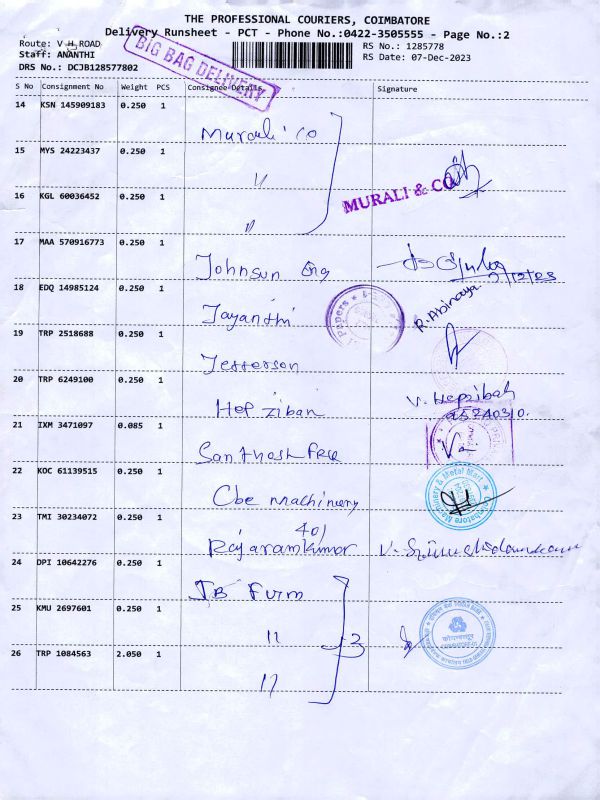 THE PROFESSIONAL COURIERS, COIMBATORE
Delivery Runsheet - PCT - Phone No.:0422-3505555 - Page No.:2
Route: V H ROAD
Staff: ANANTHI
DRS No.: DCJB128577802
BIG BAG DELIVERY
RS No.: 1285778
RS Date: 07-Dec-2023
S No Consignment No Weight PCS Consignee Details Signature
14 KSN 145909183 0.250 1
Murali Co
15 MYS 24223437 0.250 1
"
MURALI & CO
16 KGL 60036452 0.250 1
"
17 MAA 570916773 0.250 1
Johnsun Eng
18 EDQ 14985124 0.250 1
Jayanthi
R. Abinaya
19 TRP 2518688 0.250 1
Jefferson
20 TRP 6249100 0.250 1
Hepziban
V. Hepzibah
21 IXM 3471097 0.085 1
Santhosh
22 KOC 61139515 0.250 1
Cbe machinery
Coimbatore Machinery & Metal Mart
23 TMI 30234072 0.250 1
401
Rajaramkumar
24 DPI 10642276 0.250 1
JB Furm
25 KMU 2697601 0.250 1
11
3
26 TRP 1084563 2.050 1
11